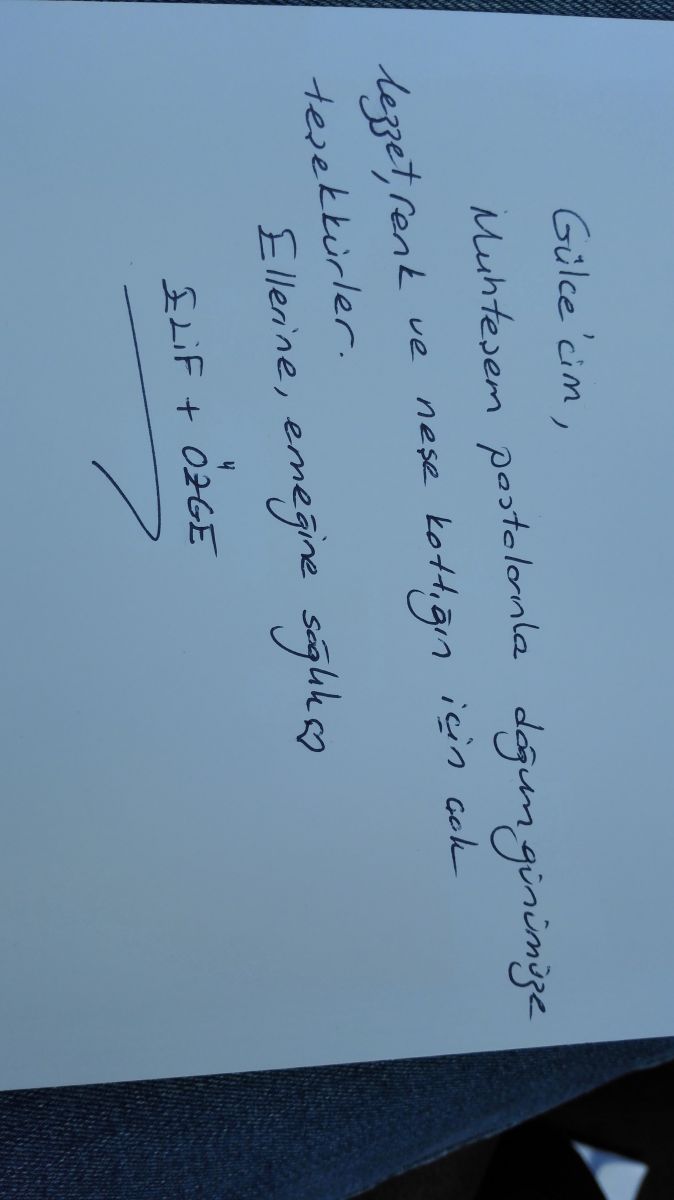 Gülce'cim,
Muhteşem pastalarınla doğum günümüze
lezzet, renk ve neşe kattığın için çok
teşekkürler.
Ellerine, emeğine sağlık ♡
ELİF + ÖZGE